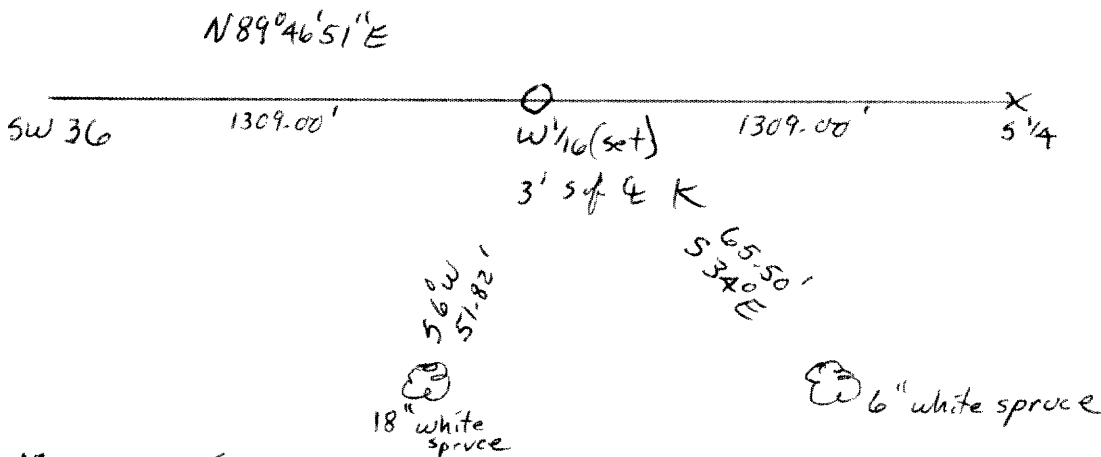 N89°46'51"E
SW 36
1309.00'
W1/16(set)
1309.00'
S1/4
3' S of ℄ K
S6°W
51.82'
65.50'
S34°E
18" white
spruce
6" white spruce